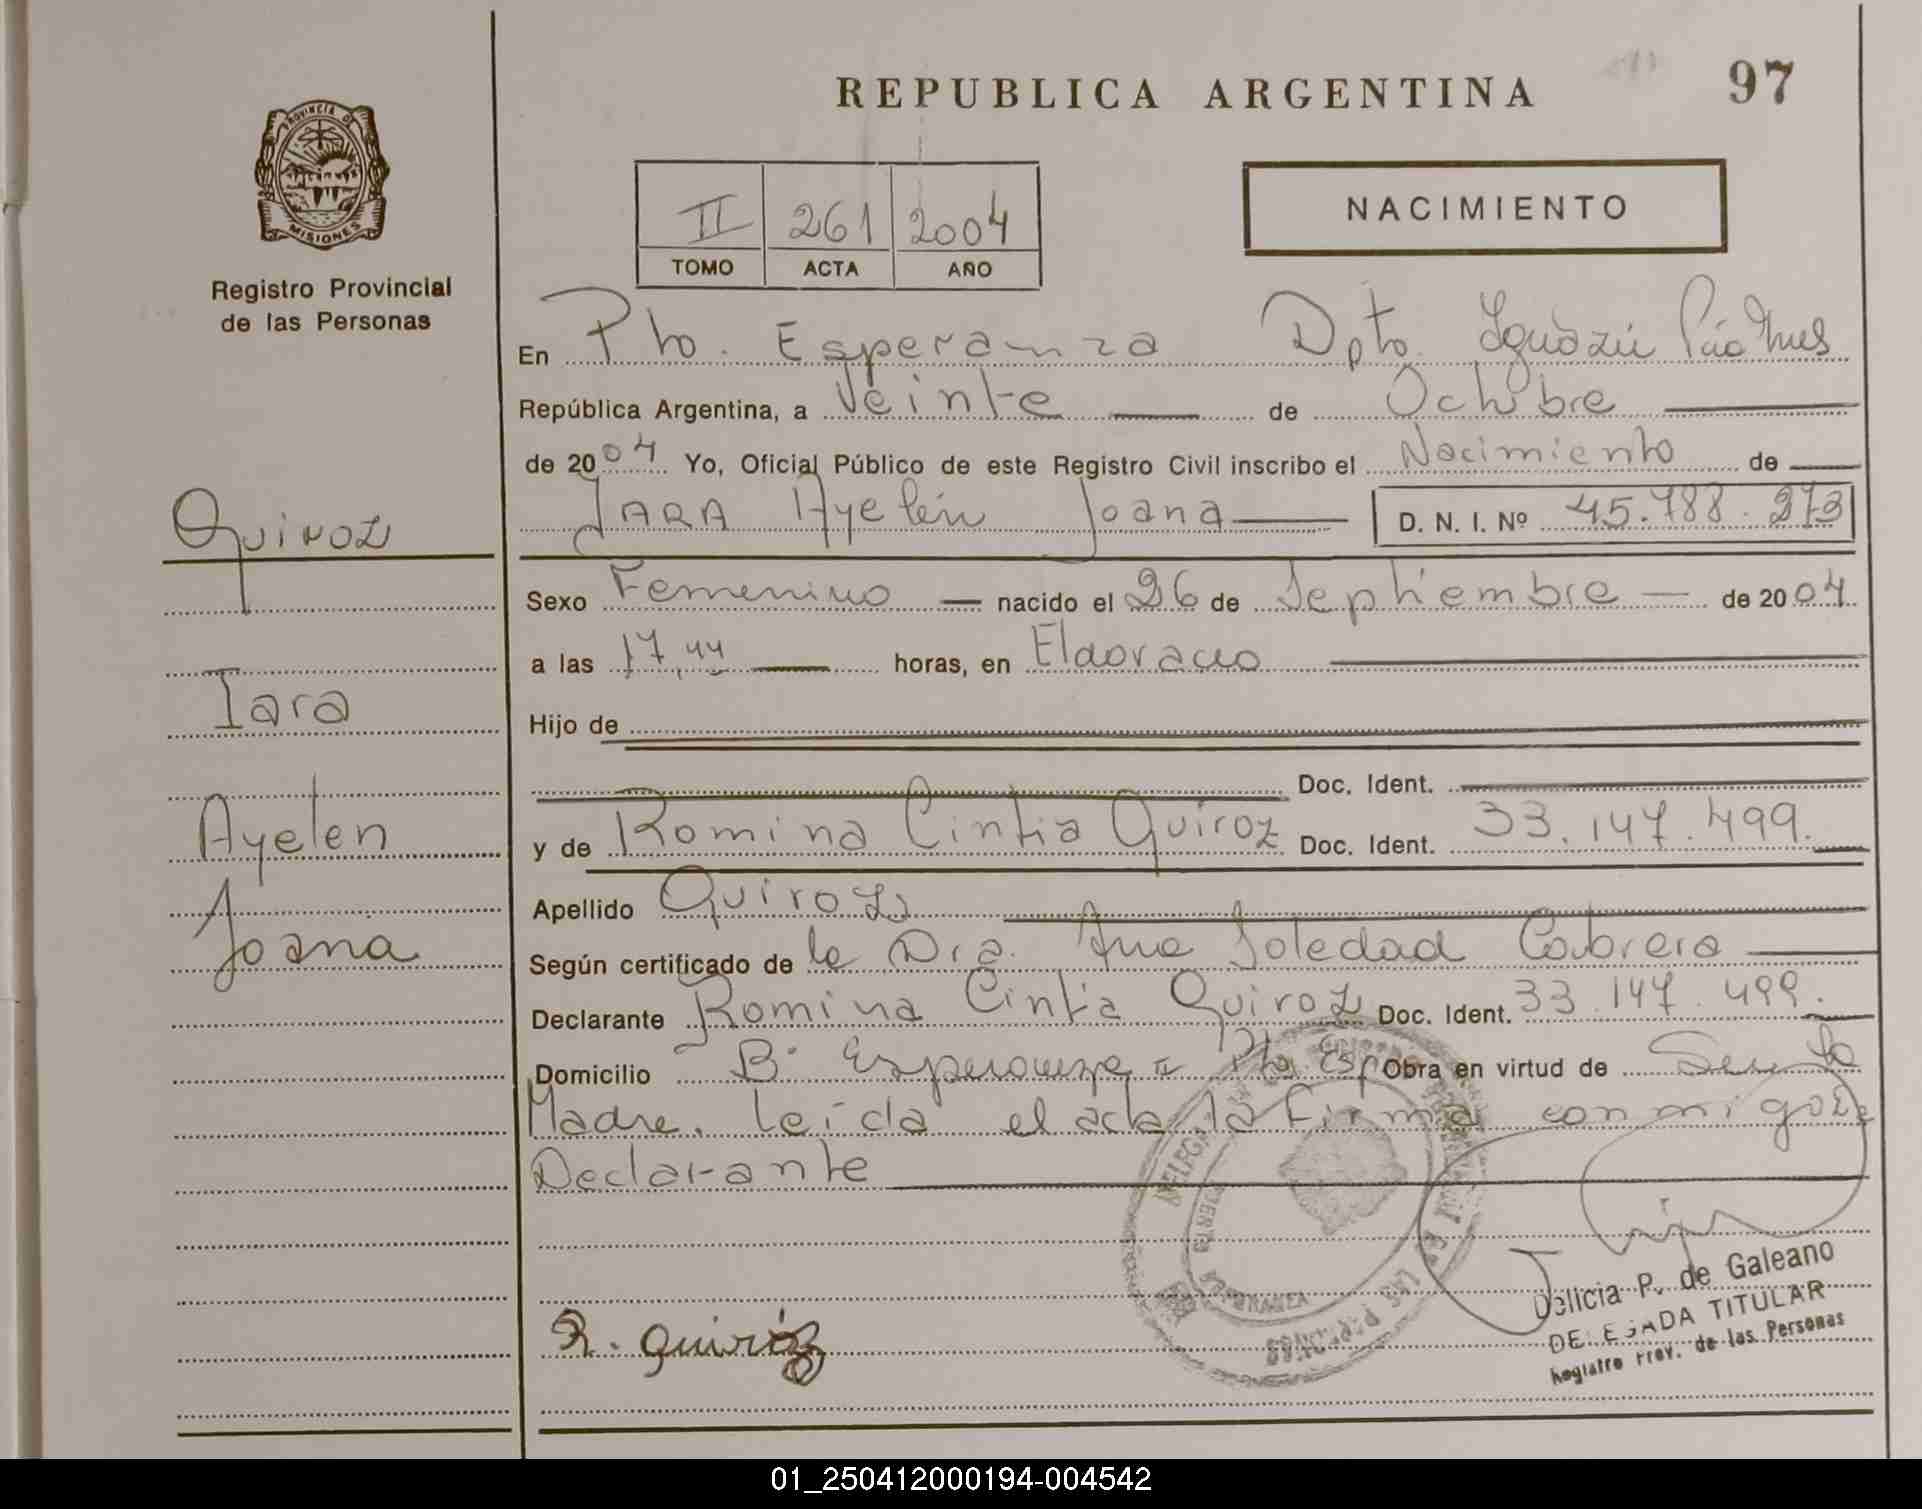 REPUBLICA ARGENTINA
97
PROVINCIA DE
MISIONES
Registro Provincial
de las Personas
II 261 2004
TOMO ACTA AÑO
NACIMIENTO
En Pto. Esperanza Dpto. Iguazú Pcia Mnes
República Argentina, a Veinte de Octubre
de 2004 Yo, Oficial Público de este Registro Civil inscribo el Nacimiento de
IARA Ayelén Joana D. N. I. Nº 45.788.273
Quiroz
Sexo Femenino nacido el 26 de Septiembre de 2004
a las 17,44 horas, en Eldorado
Iara
Hijo de
Doc. Ident.
Ayelen
y de Romina Cintia Quiroz Doc. Ident. 33.147.499.
Apellido Quiroz
Joana
Según certificado de la Dra. Ana Soledad Cabrera
Declarante Romina Cintia Quiroz Doc. Ident. 33.147.499.
Domicilio Bº Esperanza Pto. Esp Obra en virtud de Ser la
Madre. Leída el acta la firma conmigo la
Declarante
R. Quiróz
Delicia P. de Galeano
DELEGADA TITULAR
Registro Prov. de las Personas
01_250412000194-004542